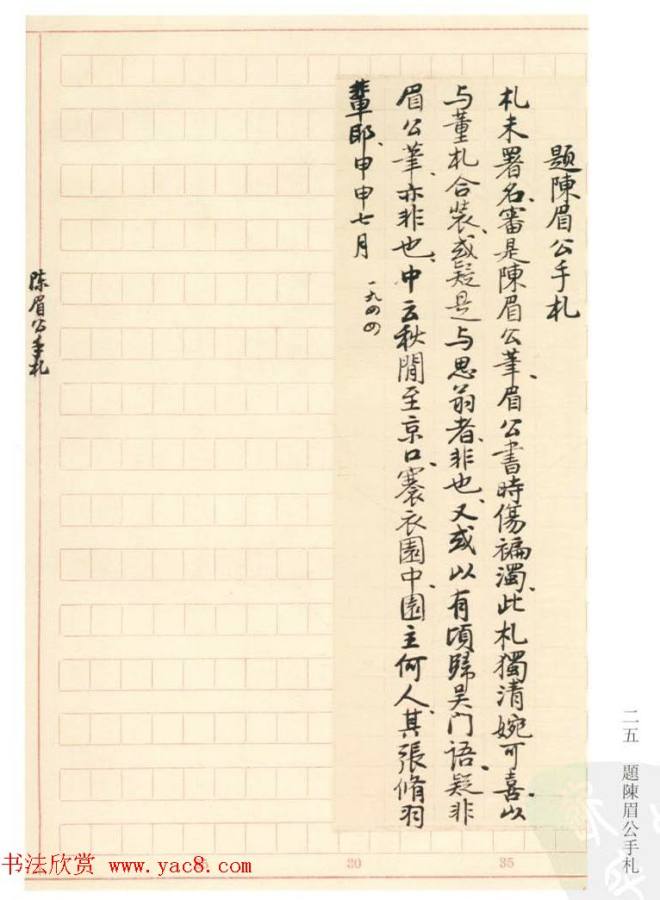 題陳眉公手札
札未署名、審是陳眉公筆、眉公書時傷褊濁、此札獨清婉可喜、以
与董札合裝、或疑是与思翁者、非也、又或以有頃歸吴门語、疑非
眉公筆、亦非也、中云秋間至京口、褰衣園中、園主何人、其張脩羽
輩耶、甲申七月
一九四四
陈眉公手札
二五 題陳眉公手札
30
35
书法欣赏 www.yac8.com